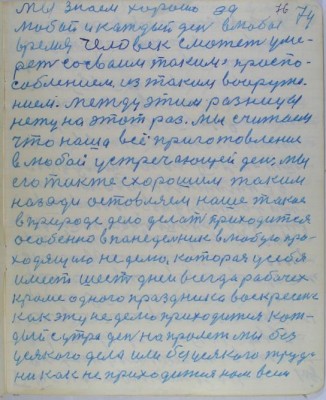 Мы знаем хорошо за 76 74
Любой и каждый ден в любое
время, человек сможет уме-
реть со своим таким приспо-
соблением, из таким вооруже-
нием. Между этим разницы
нету на этот раз. Мы считаем
что наша всё приготовления
в любой устречающей ден, мы
его такте схорошим таким
назади оставляем наше такое
в природе дело делат приходится
особенно в панеделник в любую про-
ходящую неделю, которая у себя
имеет шест дней всегда рабочех
кроме одного праздника воскресение
как эту неделю приходится каж-
дый с утра ден на пролет мы без
усякого дела или без усякого труда
ни как не приходится нам всем